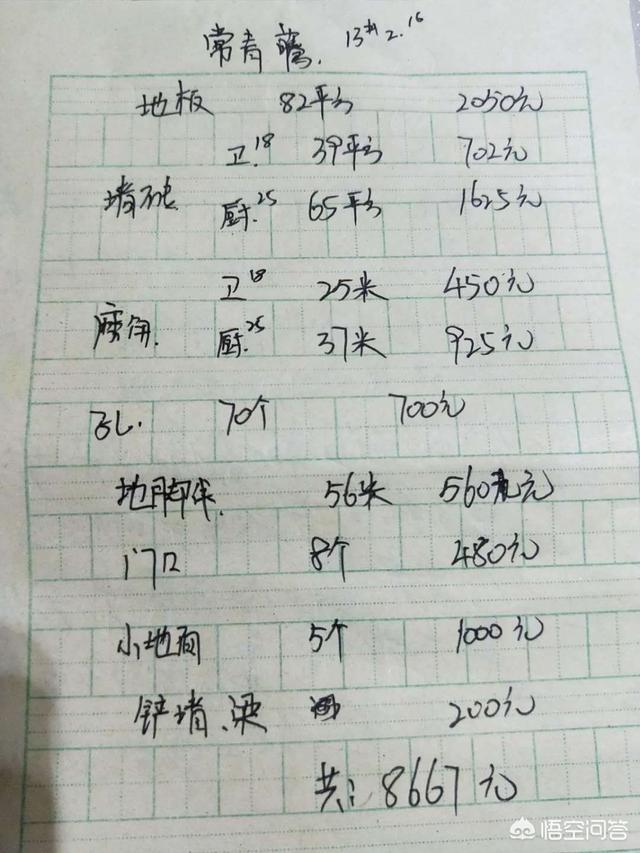 常青藤. 13#2.16
地板 82平方 2050元
卫.18 39平方 702元
墙砖 厨.25 65平方 1625元
卫18 25米 450元
座角. 厨.25 37米 925元
孔. 70个 700元
地脚线. 56米 560元
门口 8个 480元
小地面 5个 1000元
铲墙.梁 200元
共: 8667元
悟空问答